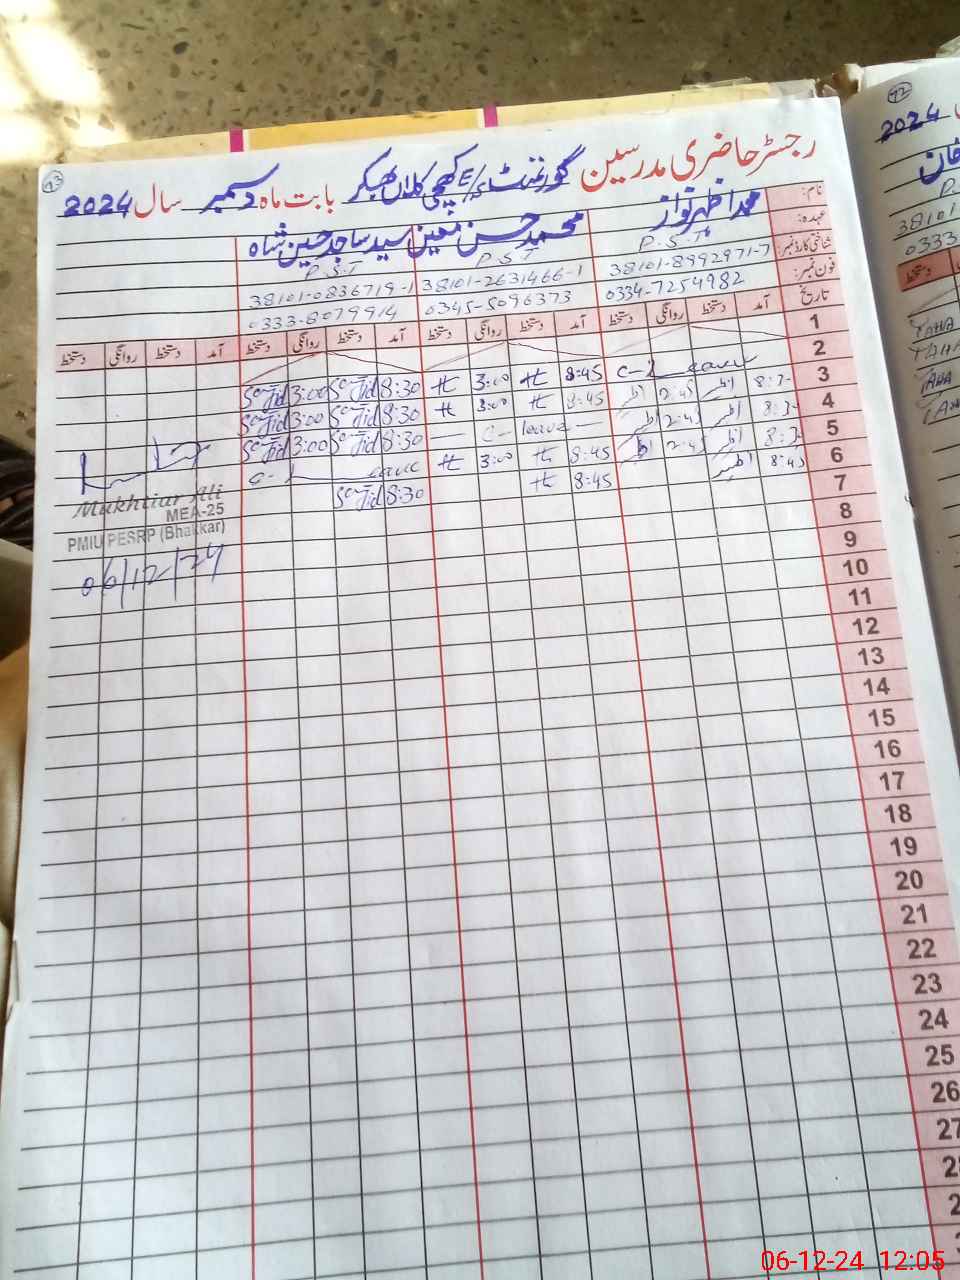 73
رجسٹر حاضری مدرسین گورنمنٹ E/S کھچی کلاں بھکر بابت ماہ دسمبر سال 2024
نام: محمد اظہر نواز محمد حسن معین سید ساجد حسین شاہ
عہدہ: P.S.T P.S.T P.S.T
شناختی کارڈ نمبر: 38101-8992971-7 38101-2631466-1 38101-0836719-1
فون نمبر: 0334-7254982 0345-5096373 0333-8079914
تاریخ آمد دستخط روانگی دستخط آمد دستخط روانگی دستخط آمد دستخط روانگی دستخط آمد دستخط روانگی دستخط
1
2 C-Leave 8:45 3:00 8:30 Sajid 3:00 Sajid
3 8:3- اظہر 2:45 اظہر 8:45 3:00 8:30 Sajid 3:00 Sajid
4 8:3- اظہر 2:45 اظہر C-leave 8:30 Sajid 3:00 Sajid
5 8:3- اظہر 2:45 اظہر 8:45 3:00 C-Leave
6 8:45 اظہر 8:45 8:30 Sajid
7
8
9
10
11
12
13
14
15
16
17
18
19
20
21
22
23
24
25
26
27
Mukhtiar Ali
MEA-25
PMIU PESRP (Bhakkar)
06/12/24
72
2024
خان
38101-
0333
دستخط
06-12-24 12:05